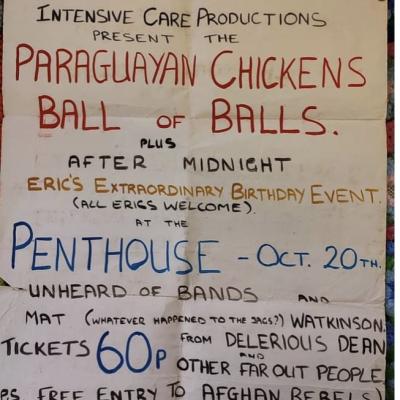 INTENSIVE CARE PRODUCTIONS
PRESENT THE
PARAGUAYAN CHICKENS
BALL OF BALLS.
PLUS
AFTER MIDNIGHT
ERIC'S EXTRAORDINARY BIRTHDAY EVENT.
(ALL ERICS WELCOME).
AT THE
PENTHOUSE - OCT. 20TH.
UNHEARD OF BANDS AND
MAT (WHATEVER HAPPENED TO THE SAGS?) WATKINSON.
TICKETS 60P FROM DELERIOUS DEAN
AND
OTHER FAR OUT PEOPLE
PS. FREE ENTRY TO AFGHAN REBELS)